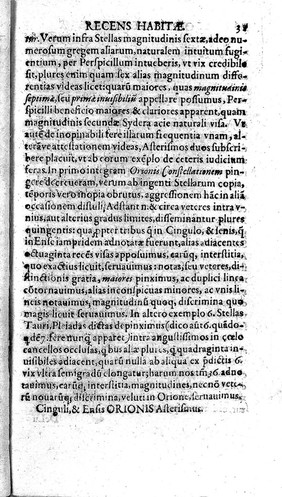 RECENS HABITÆ 31
tur. Verum infra Stellas magnitudinis sextæ, adeo nu-
merosum gregem aliarum, naturalem intuitum fugi-
entium, per Perspicillum intueberis, vt vix credibile
sit, plures enim quam sex aliæ magnitudinum diffe-
rentias videas licet: quarū maiores, quas magnitudinis
septimæ, seu primæ inuisibiliū appellare possumus, Per-
spicilli beneficio maiores & clariores apparent, quam
magnitudinis secundæ Sydera acie naturali visa. Vt
autē de inopinabili fere illarum frequentia vnam, al-
terāve attestationem videas, Asterismos duos subscri-
bere placuit, vt ab eorum exēplo de ceteris iudicium
feras. In primo integram Orionis Constellationem pin-
gere decreueram, verum ab ingenti Stellarum copia,
tēporis vero inopia obrutus, aggressionem hāc in aliā
occasionem distuli, Adstant n. & circa veteres intra v-
nius, aut alterius gradus limites, disseminantur plures
quingentis: qua ppter tribus q̄ in Cingulo, & senis, q̄
in Ense iampridem adnotatæ fuerunt, alias adiacentes
octuaginta recēs visas apposuimus, earūq; interstitia,
quo exactius licuit, seruauimus: notas, seu veteres, di-
stinctionis gratia, maiores pinximus, ac duplici linea
cōtornauimus, alias inconspicuas minores, ac vnis li-
neis notauimus, magnitudinū quoq; discrimina quo
magis licuit seruauimus. In altero exemplo 6. Stellas
Tauri, Pleiadas dictas depinximus (dico aūt 6. quādo-
q̄dē 7. fere nunq̄ apparet) intra angustissimos in cœlo
cancellos occlusas, q̄bus aliæ plures, q̄ quadraginta in-
uisibiles adiacent, quarū nulla ab aliqua ex p̄dictis 6.
vix vltra semigradū elongatur, harum nos tm̄ 36. ad no-
tauimus, earūq; interstitia, magnitudines, necnō vete-
rū nouarūq; discrimina, veluti in Orione, seruauimus.
Cinguli, & Ensis ORIONIS Asterismus.